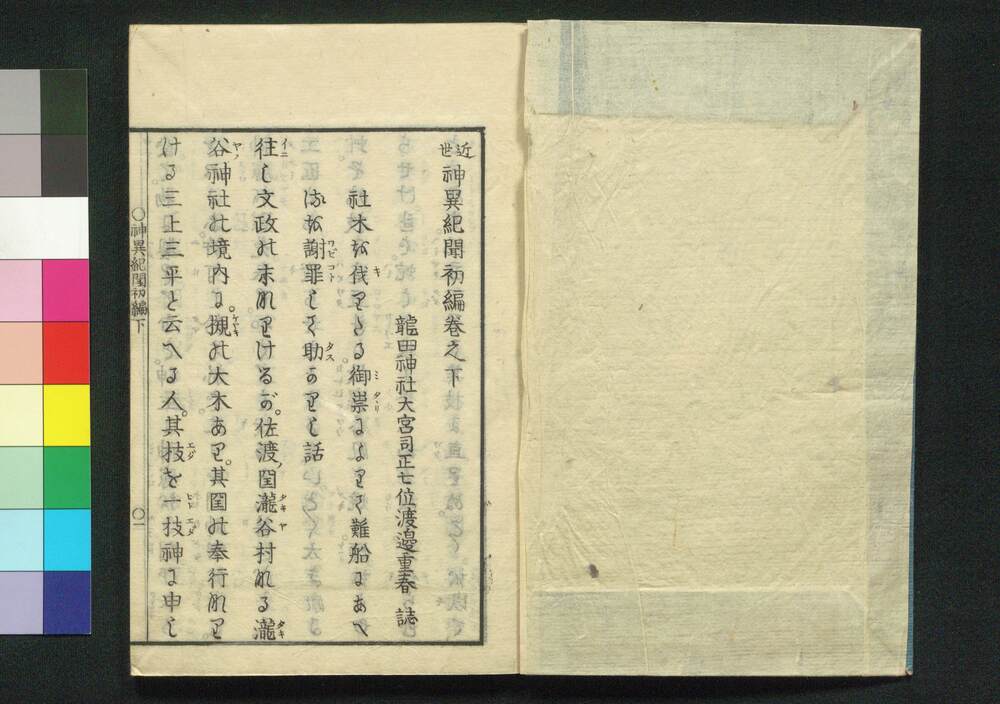 近世神異紀聞初編巻之下
龍田神社大宮司正七位渡邉重春 誌
社木を伐りたる御祟によりて難船にあへ
るを謝罪して助かりし話
往し文政の末なりけるが。佐渡ノ国瀧谷村なる瀧
谷神社の境内に。槻の大木あり。其国の奉行なり
ける三上三平と云へる人。其技を一技神に申し
○神異紀聞初編下
○一